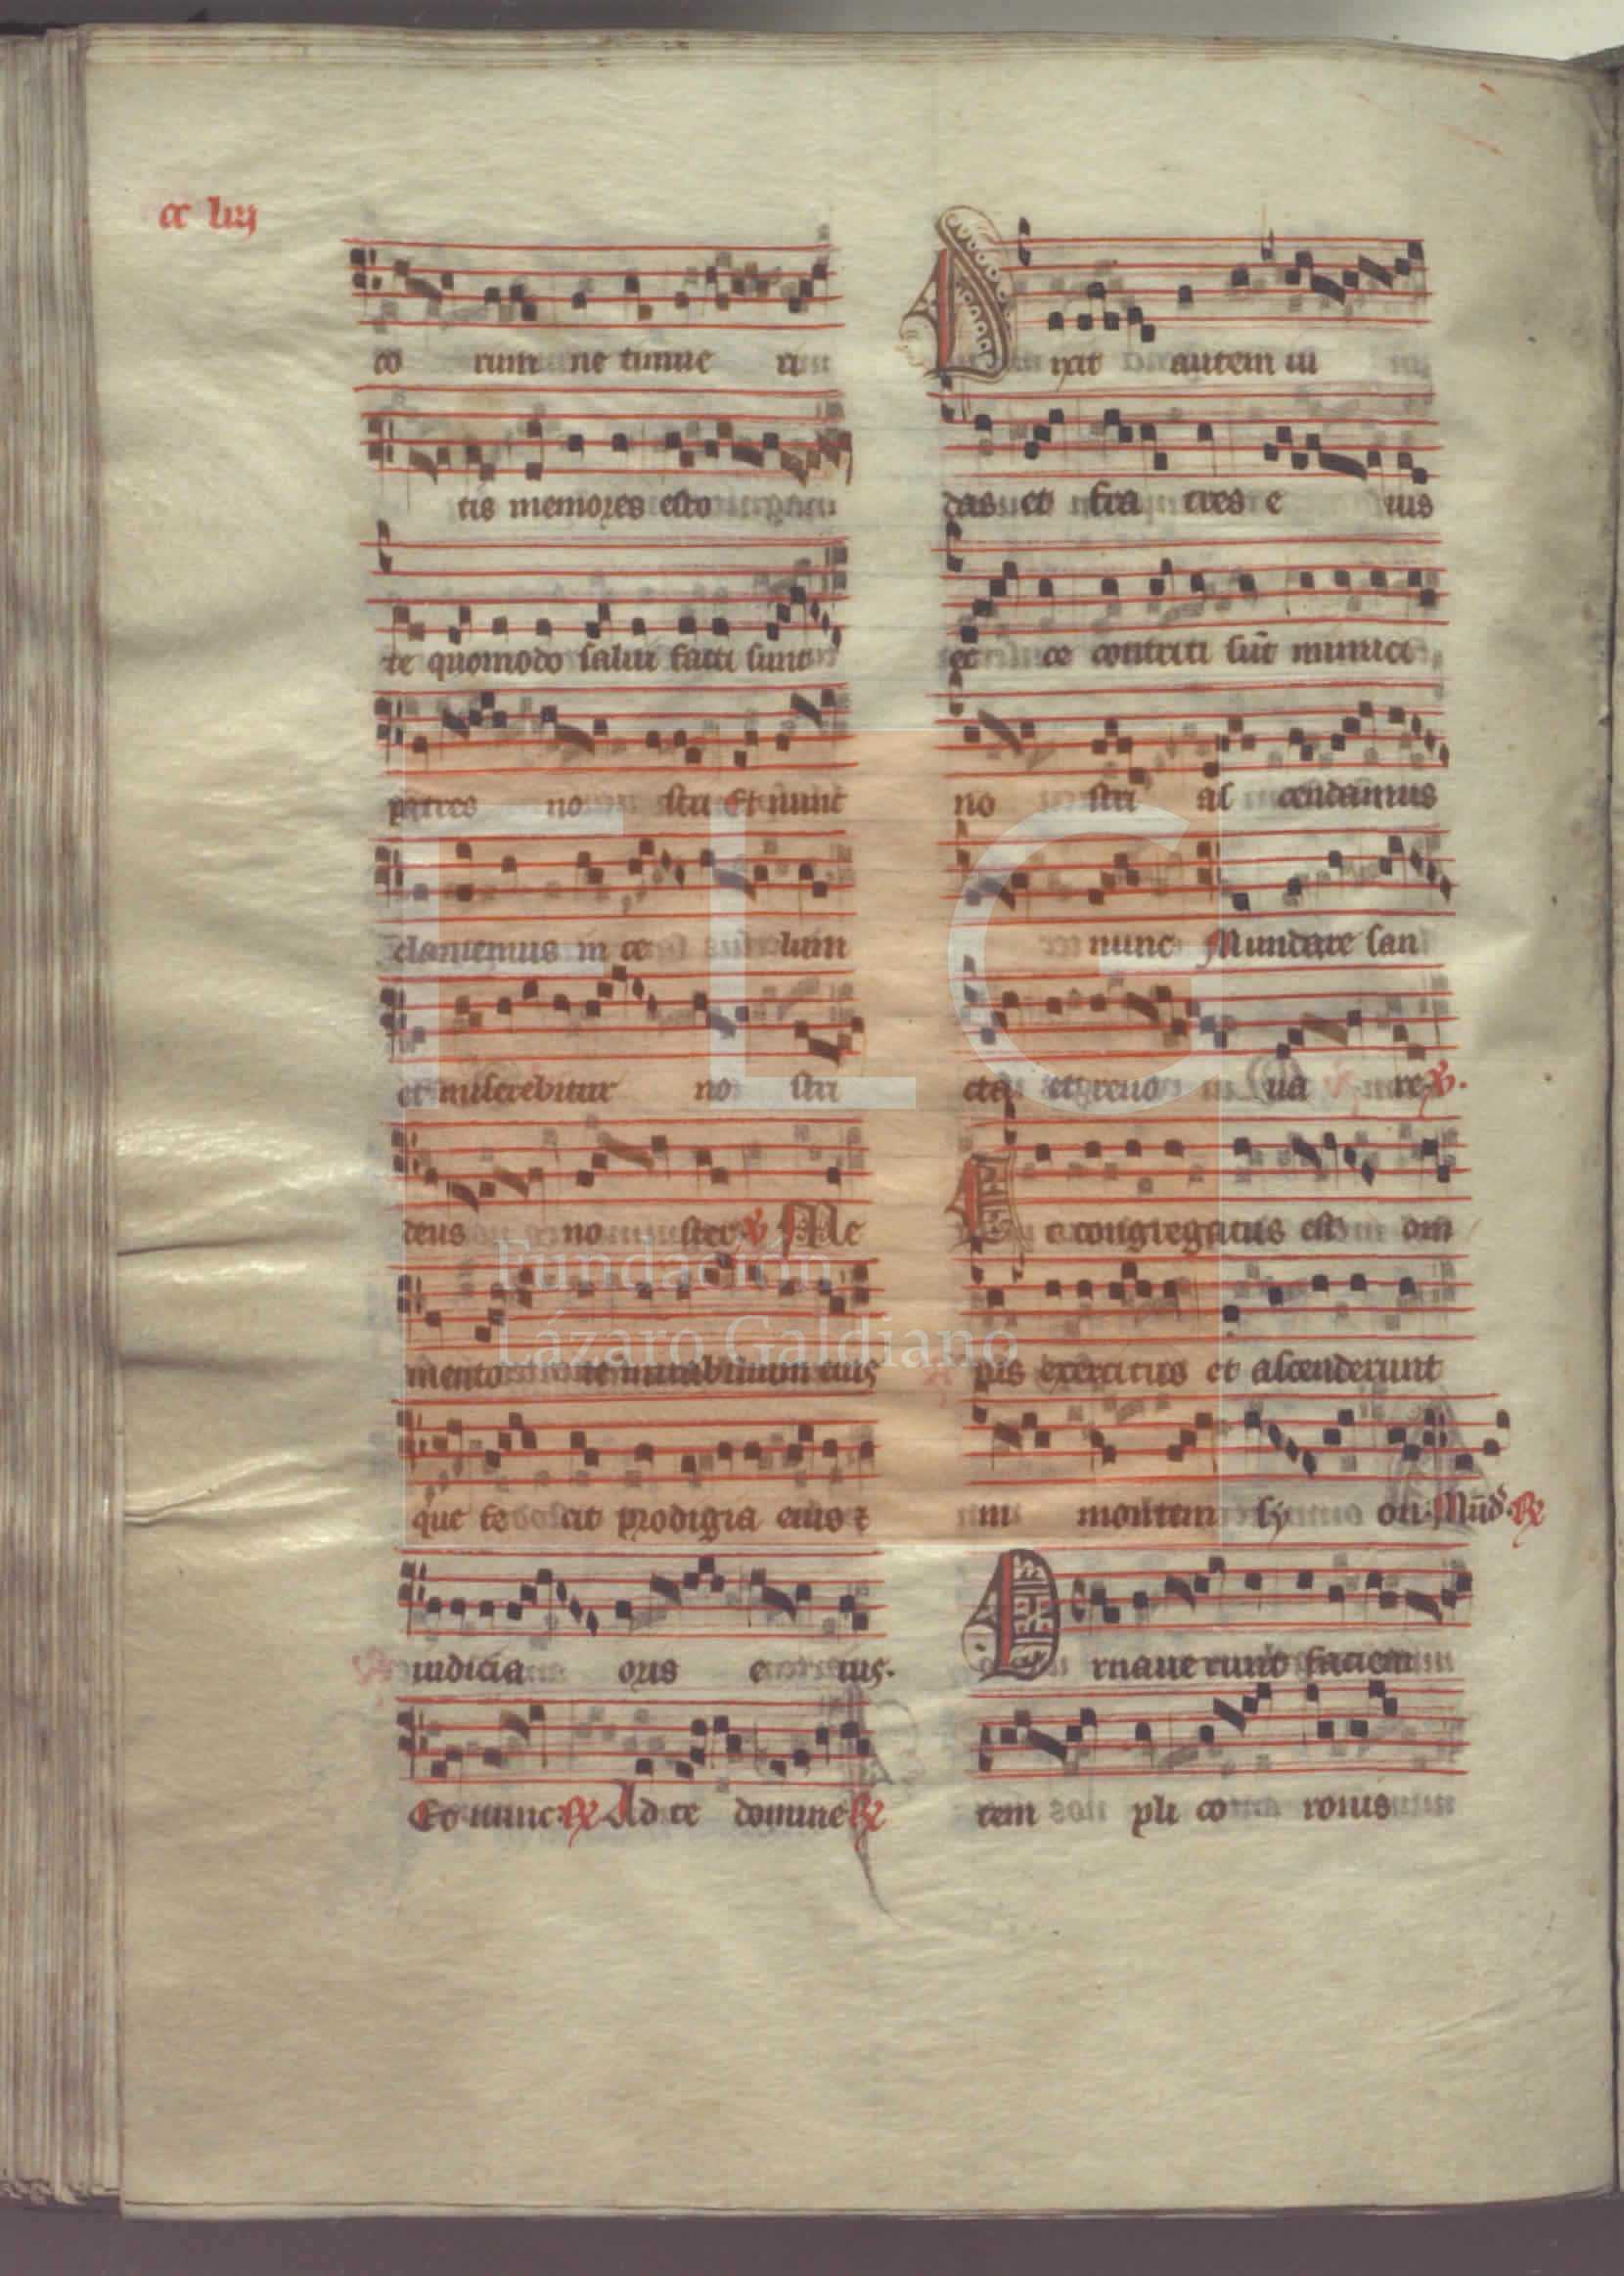 cc liij
co rum ne timue ri
tis memores esto
te quomodo salui facti sunt
patres no stri Et nunc
clamemus in ce lum
et miserebitur no stri
deus no ster ℣ Me
mento te mirabilium eius
que fe cit prodigia eius ⁊
iudicia oris e ius.
Et nunc ℟ Ad te domine ℟
D ixit autem iu
das et fra tres e ius
ec ce contriti sūt inimici
no stri as cendamus
nunc Mundare san
cta et reno ua re ℣.
A c congregatus est om
nis exercitus et ascenderunt
in montem sy on. Mūd ℟
O rnaue runt faciem
tem pli co ronis
FLG
Fundación
Lázaro Galdiano